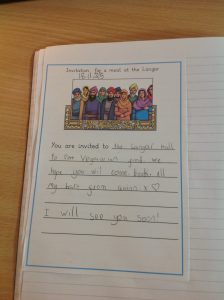 Invitation for a meal at the Langar
You are invited to the langar Hall
to eat vegetarian food. We
hope you wil come back. all
my best from
I will see you soon!